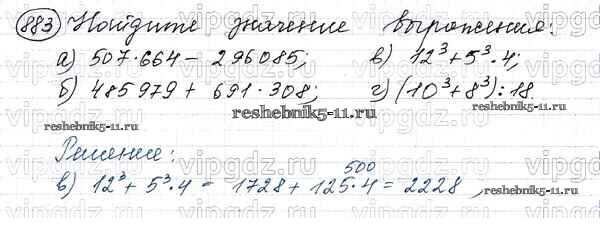 883 Найдите значение выражения:
а) 507·664 - 296085; в) 12³+5³·4;
б) 485979 + 691·308; г) (10³+8³):18.
reshebnik5-11.ru
reshebnik5-11.ru
reshebnik5-11.ru
vipgdz.ru
Решение:
500
в) 12³ + 5³·4 = 1728 + 125·4 = 2228,
reshebnik5-11.ru
vipgdz.ru